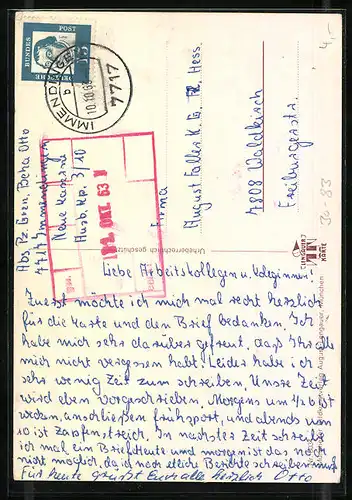 BUNDES POST
DEUTSCHE
15
IMMENDINGEN
b
10.10.63
7717
4.-
30-83
Abs Pz. Gren. Boha Otto
7717 Immendingen
Neue Kaserne
Ausb. Kp. 3/10
OKT. 63
Firma
August Faller K.G. z. H. Hess
7808 Waldkirch
Freiburgerstr.
Urheberrechtlich geschützt
KARTE
Liebe Arbeitskollegen u. Kolleginnen.
Zuerst möchte ich mich mal recht herzlich
für die Karte und den Brief bedanken. Ich
habe mich sehr darüber gefreut, daß Ihr alle
mich nicht vergessen habt. Leider habe ich
sehr wenig Zeit zum schreiben. Unsre Zeit
wird eben vorgeschrieben. Morgens um 1/2 6 ist
wecken, anschließen frühsport, und abends um
10 ist Zapfenstreich. In nächster Zeit schreibe
ich mal ein Brief. Heute und morgen ist das noch
nicht möglich, da ich noch etliche Berichte schreiben muß
Für heute grüßt Euch alle herzlich Otto